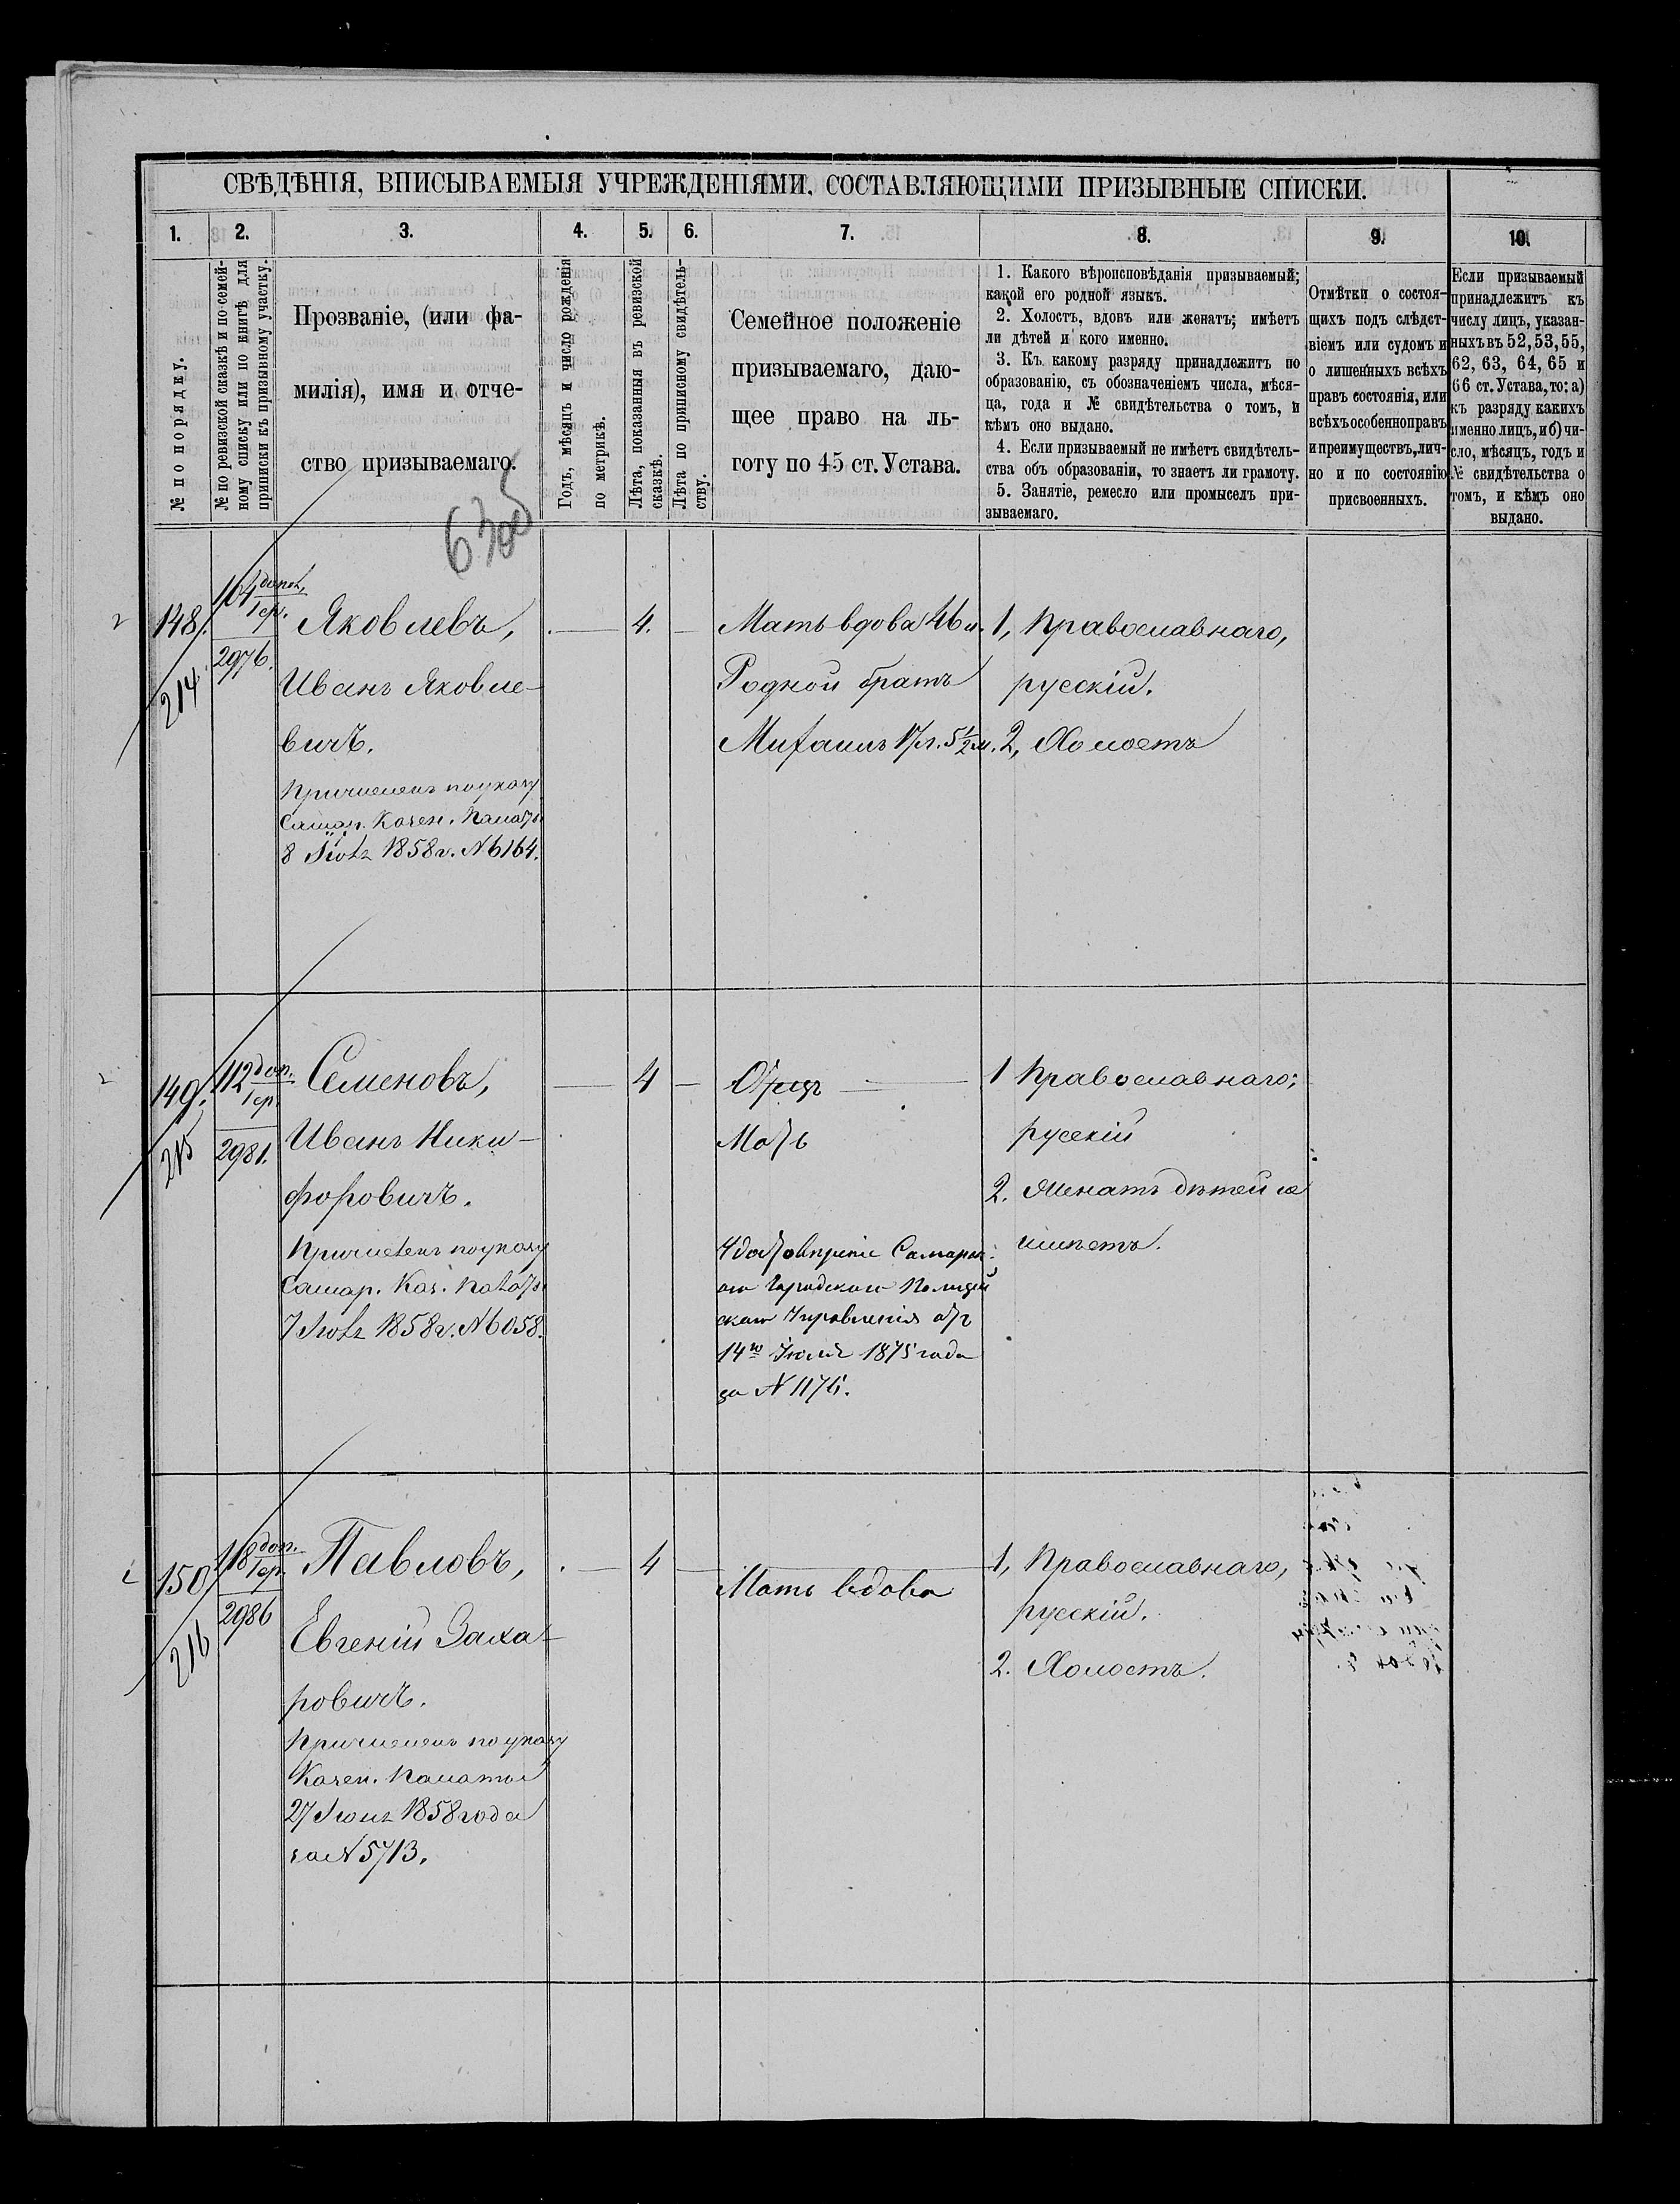 СВѢДѢНІЯ, ВПИСЫВАЕМЫЯ УЧРЕЖДЕНІЯМИ, СОСТАВЛЯЮЩИМИ ПРИЗЫВНЫЕ СПИСКИ.
1.
2.
3.
4.
5.
6.
7.
8.
9.
10.
№ по порядку.
№ по ревизской сказкѣ и по семей-
ному списку или по книгѣ для
приписки къ призывному участку.
Прозваніе, (или фа-
милія), имя и отче-
ство призываемаго.
Годъ, мѣсяцъ и число рожденія
по метрикѣ.
Лѣта, показанныя въ ревизской
сказкѣ.
Лѣта по приписному свидѣтель-
ству.
Семейное положеніе
призываемаго, даю-
щее право на ль-
готу по 45 ст. Устава.
1. Какого вѣроисповѣданія призываемый;
какой его родной языкъ.
2. Холостъ, вдовъ или женатъ; имѣетъ
ли дѣтей и кого именно.
3. Къ какому разряду принадлежитъ по
образованію, съ обозначеніемъ числа, мѣся-
ца, года и № свидѣтельства о томъ, и
кѣмъ оно выдано.
4. Если призываемый не имѣетъ свидѣтель-
ства объ образованіи, то знаетъ ли грамоту.
5. Занятіе, ремесло или промыселъ при-
зываемаго.
Отмѣтки о состоя-
щихъ подъ слѣдст-
віемъ или судомъ и
о лишенныхъ всѣхъ
правъ состоянія, или
всѣхъ особенно правъ
и преимуществъ, лич-
но и по состоянію
присвоенныхъ.
Если призываемый
принадлежитъ къ
числу лицъ, указан-
ныхъ въ 52, 53, 55,
62, 63, 64, 65 и
66 ст. Устава, то: а)
къ разряду какихъ
именно лицъ, и б) чи-
сло, мѣсяцъ, годъ и
№ свидѣтельства о
томъ, и кѣмъ оно
выдано.
148.
214
104 допол.
1 ср.
2976.
Яковлевъ,
Иванъ Яковле-
вичъ.
Причисленъ по указу
Самар. Казен. Палаты
8 Іюля 1858 г. № 6164.
4.
Мать вдова 46 л.
Родной братъ
Михаилъ 17 л. 5½ м.
1, Православнаго,
русскій.
2, Холостъ
149.
215
112 доп.
1 ср.
2981.
Семеновъ,
Иванъ Ники-
форовичъ.
Причисленъ по указу
Самар. Каз. Палаты
7 Іюля 1858 г. № 6058.
4
Отецъ
Мать
Удостовѣреніе Самарск.
аго Городскаго Полицей
скаго Управленія отъ
14го Іюля 1875 года
за № 1176.
1 Православнаго;
русскій
2. Женатъ дѣтей не
имѣетъ.
150
216
118 доп.
1 ср.
2986
Павловъ,
Евгеній Заха-
ровичъ.
Причисленъ по указу
Казен. Палаты
27 Іюня 1858 года
за № 5713.
4
Мать вдова
1, Православнаго,
русскій.
2. Холостъ.